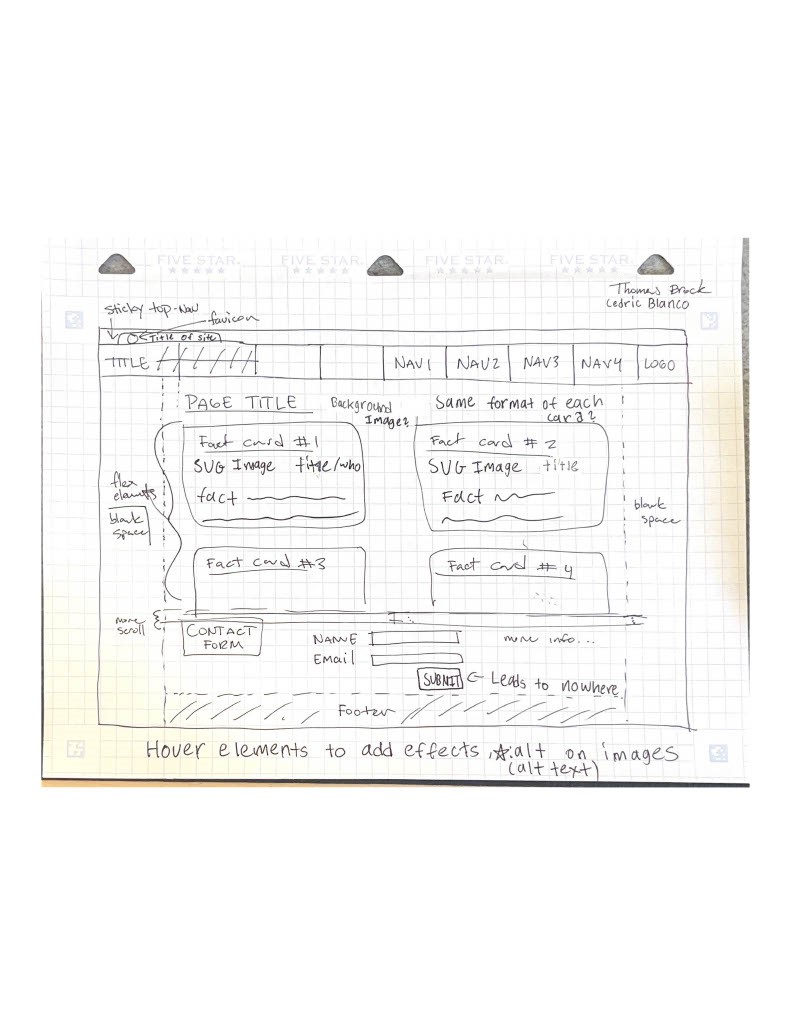 FIVE STAR. FIVE STAR. FIVE STAR. FIVE STAR.
Thomas Brock
Cedric Blanco
sticky top-nav
favicon
Title of site
TITLE NAV1 NAV2 NAV3 NAV4 LOGO
PAGE TITLE
Background
Image?
Same format of each
card?
Fact card #1
SVG Image title/who
fact
Fact card # 2
SVG Image title
Fact
flex
elements
blank
space
blank
space
Fact card #3
Fact card # 4
more
scroll
CONTACT
FORM
NAME
Email
more info...
SUBMIT ← Leads to nowhere
Footer
Hover elements to add effects, ☆.alt on images
(alt text)